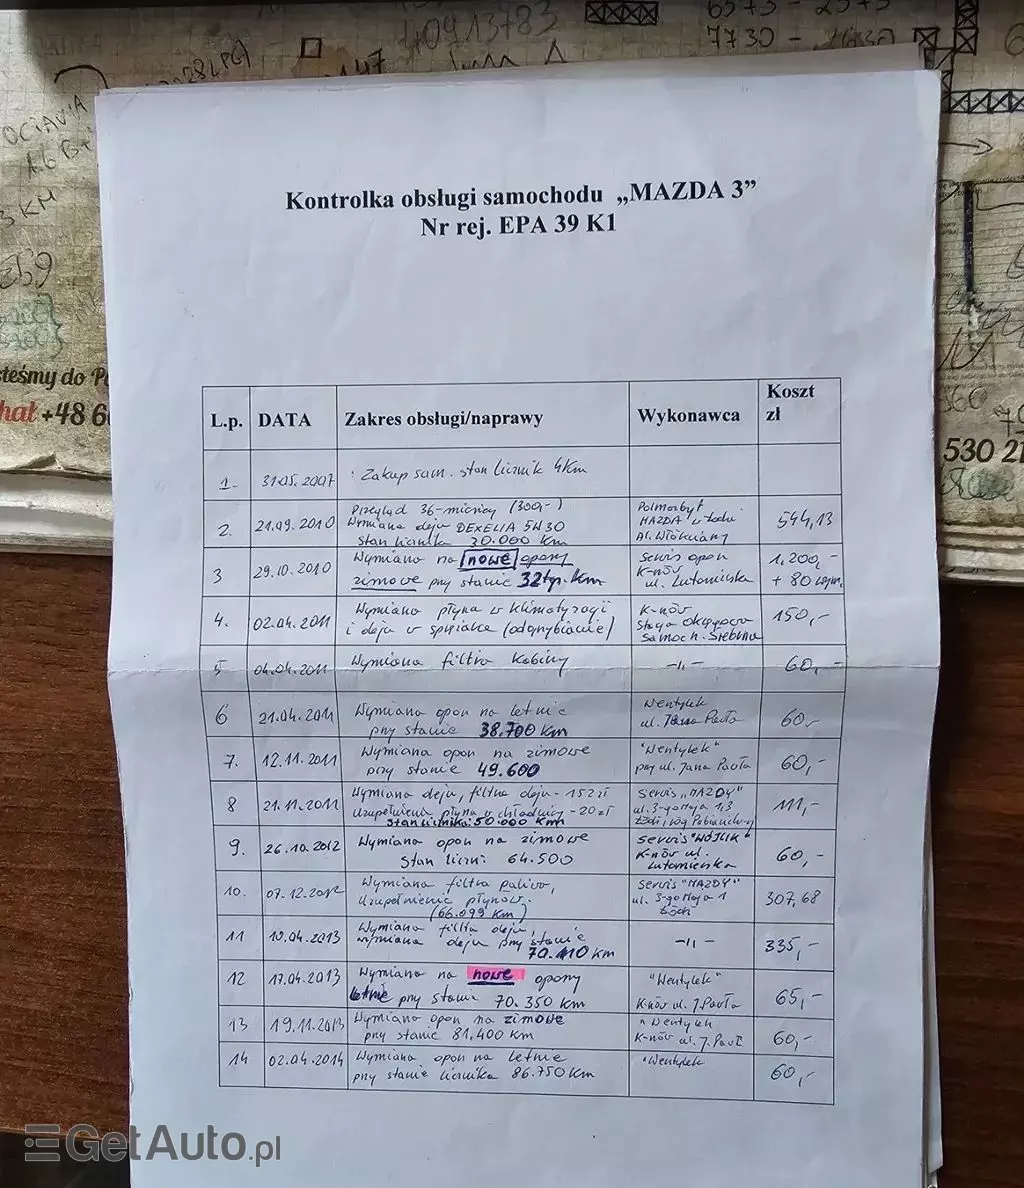 40913783
6573 - 2573
7730 - 2630
147
OCTAVIA
1.6 B
3 KM
eśmy do P
hał +48 6
530 21
Kontrolka obsługi samochodu „MAZDA 3”
Nr rej. EPA 39 K1
L.p. DATA Zakres obsługi/naprawy Wykonawca Koszt zł
1. 31.05.2007 Zakup sam. stan licznik 4km
2. 21.09.2010 Przegląd 36-mieśięczny (300,-)
Wymiana oleju DEXELIA 5W30
stan licznika 30.000 km
Polmozbyt
MAZDA w Łodzi
Al. Włókniarzy
544,13
3 29.10.2010 Wymiana na nowe opony
zimowe przy stanie 32tys. km
Serwis opon
K-nów
ul. Lutomierska
1.200,-
+ 80 wym.
4. 02.04.2011 Wymiana płynu w klimatyzacji
i oleju w spreżarce (odgrzybianie)
K-nów
Stacja
Samoch.
150,-
5 04.04.2011 Wymiana filtra kabiny -„- 60,-
6 21.04.2011 Wymiana opon na letnie
przy stanie 38.700 km
Wentylek
ul. Jana Pawła
60,-
7. 12.11.2011 Wymiana opon na zimowe
przy stanie 49.600
"Wentylek"
przy ul. Jana Pawła
60,-
8 21.11.2011 Wymiana oleju, filtra oleju - 152zł
Uzupełnienie płynu w chłodnicy - 20 zł
Stan licznika: 50.000 km
Serwis „MAZDY"
ul. 3-go Maja 1/3
Łódź, róg Pabianickiej
111,-
9. 26.10.2012 Wymiana opon na zimowe
Stan liczn: 64.500
Serwis "WÓJCIK"
K-nów ul.
Lutomierska
60,-
10. 07.12.2012 Wymiana filtra paliwa,
Uzupełnienie płynów.
(66.099 km)
Serwis "MAZDY"
ul. 3-go Maja 1
Łódź
307,68
11 10.04.2013 Wymiana filtra oleju,
wymiana oleju przy stanie
70.110 km
-„- 335,-
12 17.04.2013 Wymiana na nowe opony
letnie przy stanie 70.350 km
"Wentylek"
K-nów ul. J. Pawła
65,-
13 19.11.2013 Wymiana opon na zimowe
przy stanie 81.400 km
"Wentylek
K-nów ul. J. Pawł
60,-
14 02.04.2014 Wymiana opon na letnie
przy stanie licznika 86.750 km
"Wentylek
60,-
GetAuto.pl